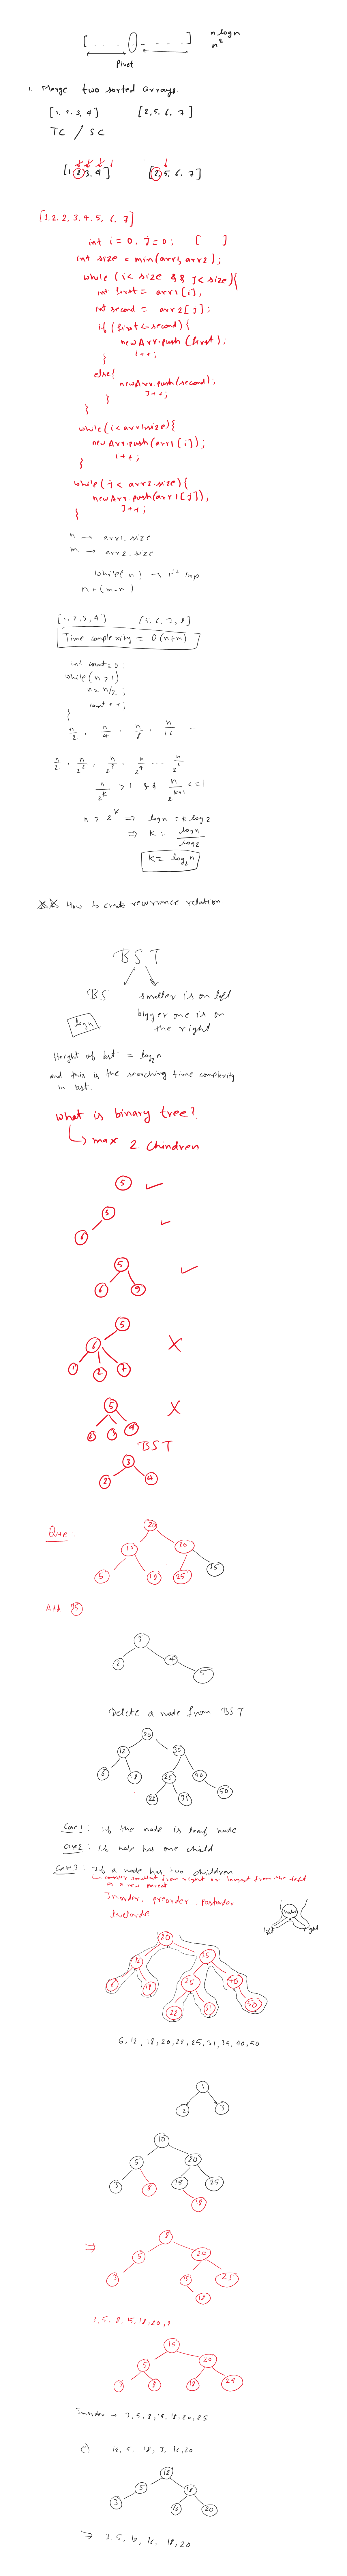 [ - - - - - - - ] n log n
n²
Pivot
1. Merge two sorted arrays.
[1, 2, 3, 4] [2, 5, 6, 7]
TC / SC
[1, 2, 3, 4] [2, 5, 6, 7]
[1, 2, 2, 3, 4, 5, 6, 7]
int i = 0, J = 0; [ ]
int size = min(arr1, arr2);
while (i < size && J < size){
int first = arr1[i];
int second = arr2[j];
if (first <= second) {
newArr.push(first);
i++;
}
else{
newArr.push(second);
J++;
}
}
while (i < arr1.size){
newArr.push(arr1[i]);
i++;
}
while (j < arr2.size){
newArr.push(arr1[J]);
J++;
}
n → arr1.size
m → arr2.size
while(n) → 1st loop
n + (m-n)
[1, 2, 3, 4] [5, 6, 7, 8]
Time complexity = O(n+m)
int count = 0;
while(n>1)
n = n/2;
count++;
}
n/2, n/4, n/8, n/16 ....
n/2, n/2², n/2³, n/2⁴ ... n/2^k
n/2^k > 1 && n/2^k+1 <= 1
n > 2^k ⇒ log n = k log 2
⇒ k = log n / log 2
k = log₂n
How to create recurrence relation
BST
BS smaller is on left
log n bigger one is on
the right
Height of bst = log₂n
and this is the searching time complexity
in bst.
what is binary tree?
max 2 chindren
5
5
6
5
6 9
5
6
1 2 7
5
2 3 4
BST
3
2 4
Que:
20
10 20
5 18 25 35
Add 35
3
2 4
5
Delete a node from BST
20
12 35
6 18 25 40
22 31 50
Case 1: If the node is leaf node
Case 2: If node has one child
Case 3: If a node has two children
consider smallest from right or largest from the left
as a new parent
Inorder, preorder, postorder
node
left right
20
12 35
6 18 25 40
22 31 50
6, 12, 18, 20, 22, 25, 31, 35, 40, 50
1
2 3
10
5 20
3 8 15 25
18
⇒ 8
5 20
3 15 25
18
3, 5, 8, 15, 18, 20, 2
15
5 20
3 8 18 25
Inorder → 3, 5, 8, 15, 18, 20, 25
12, 5, 18, 3, 16, 20
12
5 18
3 16 20
⇒ 3, 5, 12, 16, 18, 20